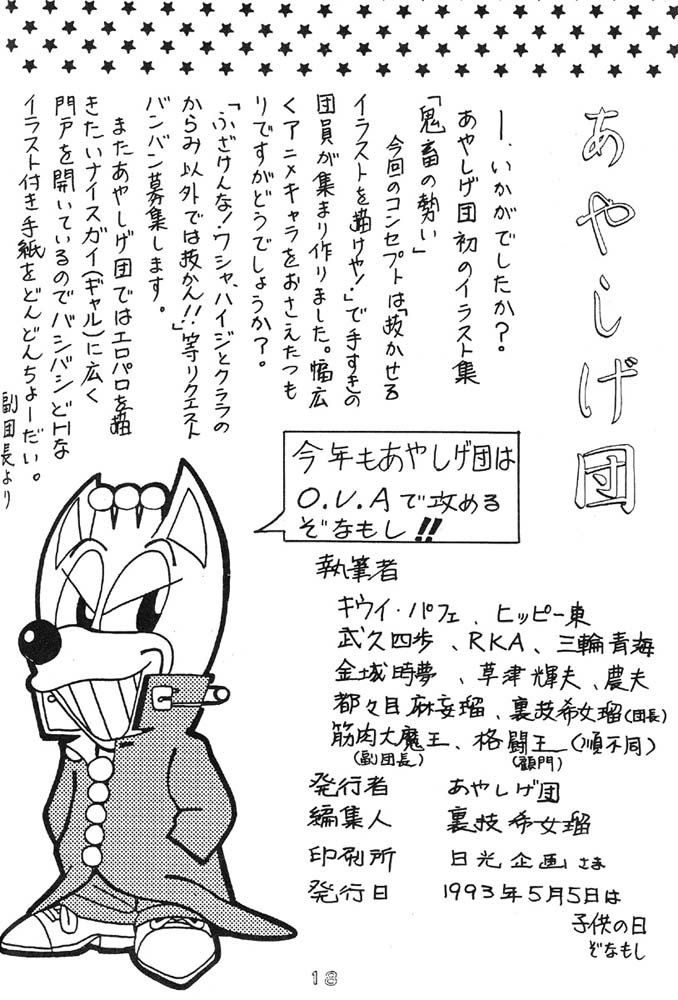 あやしげ団
―、いかがでしたか？
あやしげ団初のイラスト集
「鬼畜の勢い」
今回のコンセプトは「抜かせる
イラストを描けや！」で手すきの
団員が集まり作りました。幅広
くアニメキャラをおさえたつも
りですがどうでしょうか？。
「ふざけんな！ワシャ、ハイジとクララの
からみ以外では抜かん!!」等リクエスト
バンバン募集します。
またあやしげ団ではエロパロを描
きたいナイスガイ(ギャル)に広く
門戸を開いているのでバシバシどHな
イラスト付き手紙をどんどんちょーだい。
副団長より
今年もあやしげ団は
O.V.Aで攻める
ぞなもし!!
執筆者
キウイ・パフェ、ヒッピー東
武久四歩、RKA、三輪青海
金城時夢、草津輝夫、農夫
都々目麻妄瑠、裏技希女瑠(団長)
筋肉大魔王、格闘王(順不同)
(副団長) (顧門)
発行者 あやしげ団
編集人 裏技希女瑠
印刷所 日光企画さま
発行日 1993年5月5日は
子供の日
ぞなもし
18